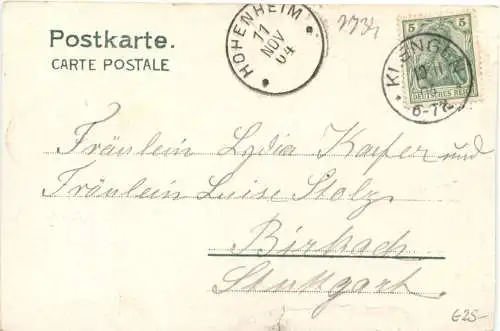 Postkarte.
CARTE POSTALE
HOHENHEIM
11
NOV
04
5 5
DEUTSCHES REICH
6-7
Fräulein Lydia Kaefer und
Fräulein Luise Stolz,
Birkach
Stuttgart.
€25-